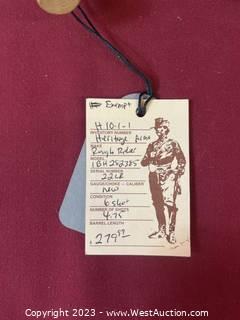 Exempt
H 10-1-1
INVENTORY NUMBER
Heritage Arms
MAKE
Rough Rider
MODEL
1BH252385
SERIAL NUMBER
22LR
GAUGE/CHOKE — CALIBER
new
CONDITION
6 shot
NUMBER OF SHOTS
4.75
BARREL LENGTH
279
Copyright 2023 - www.WestAuction.com